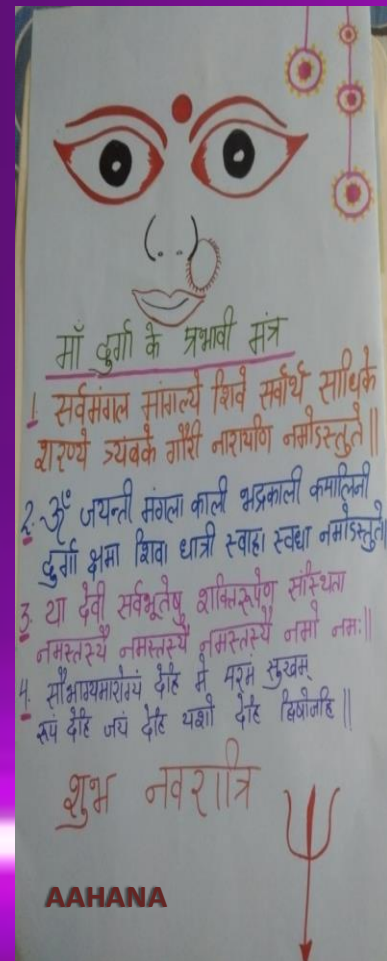 माँ दुर्गा के प्रभावी मंत्र
1. सर्वमंगल मांगल्ये शिवे सर्वार्थ साधिके
शरण्ये त्र्यंबके गौरी नारायणि नमोऽस्तुते॥
2. ॐ जयन्ती मंगला काली भद्रकाली कपालिनी
दुर्गा क्षमा शिवा धात्री स्वाहा स्वधा नमोऽस्तुते
3. या देवी सर्वभूतेषु शक्तिरूपेण संस्थिता
नमस्तस्यै नमस्तस्यै नमस्तस्यै नमो नमः॥
4. सौभाग्यमारोग्यं देहि मे परमं सुखम्
रूपं देहि जयं देहि यशो देहि द्विषोजहि॥
शुभ नवरात्रि
AAHANA